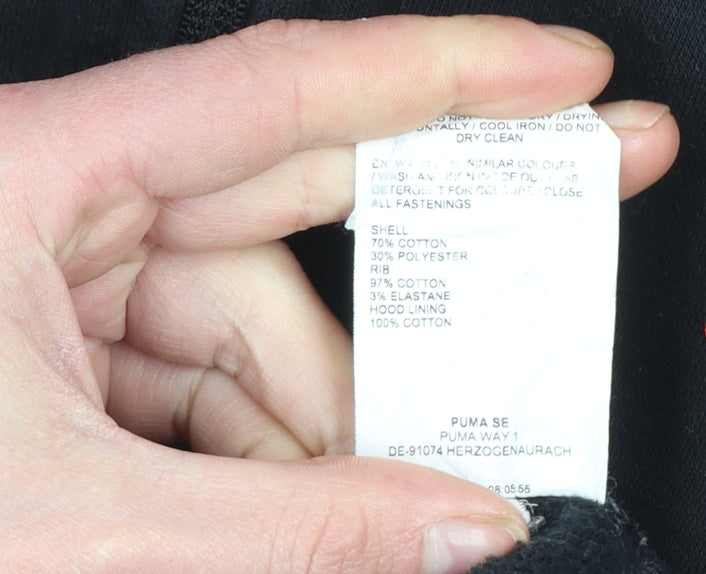 DO NOT DRY / DRYIN
ONTALLY / COOL IRON / DO NOT
DRY CLEAN
EN: WASH SIMILAR COLOURS
/ WASH AND IRON INSIDE OUT / USE
DETERGENT FOR COLOURS / CLOSE
ALL FASTENINGS
SHELL
70% COTTON
30% POLYESTER
RIB
97% COTTON
3% ELASTANE
HOOD LINING
100% COTTON
PUMA SE
PUMA WAY 1
DE-91074 HERZOGENAURACH
08.05.55